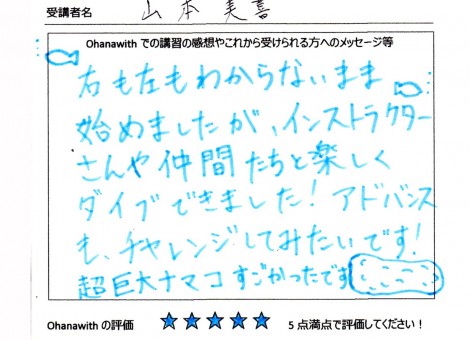 受講者名 山本美喜
Ohanawith での講習の感想やこれから受けられる方へのメッセージ等
右も左もわからないまま
始めましたが、インストラクター
さんや仲間たちと楽しく
ダイブできました！アドバンス
も、チャレンジしてみたいです！
超巨大ナマコすごかったです
Ohanawith の評価 ★★★★★ 5 点満点で評価してください！